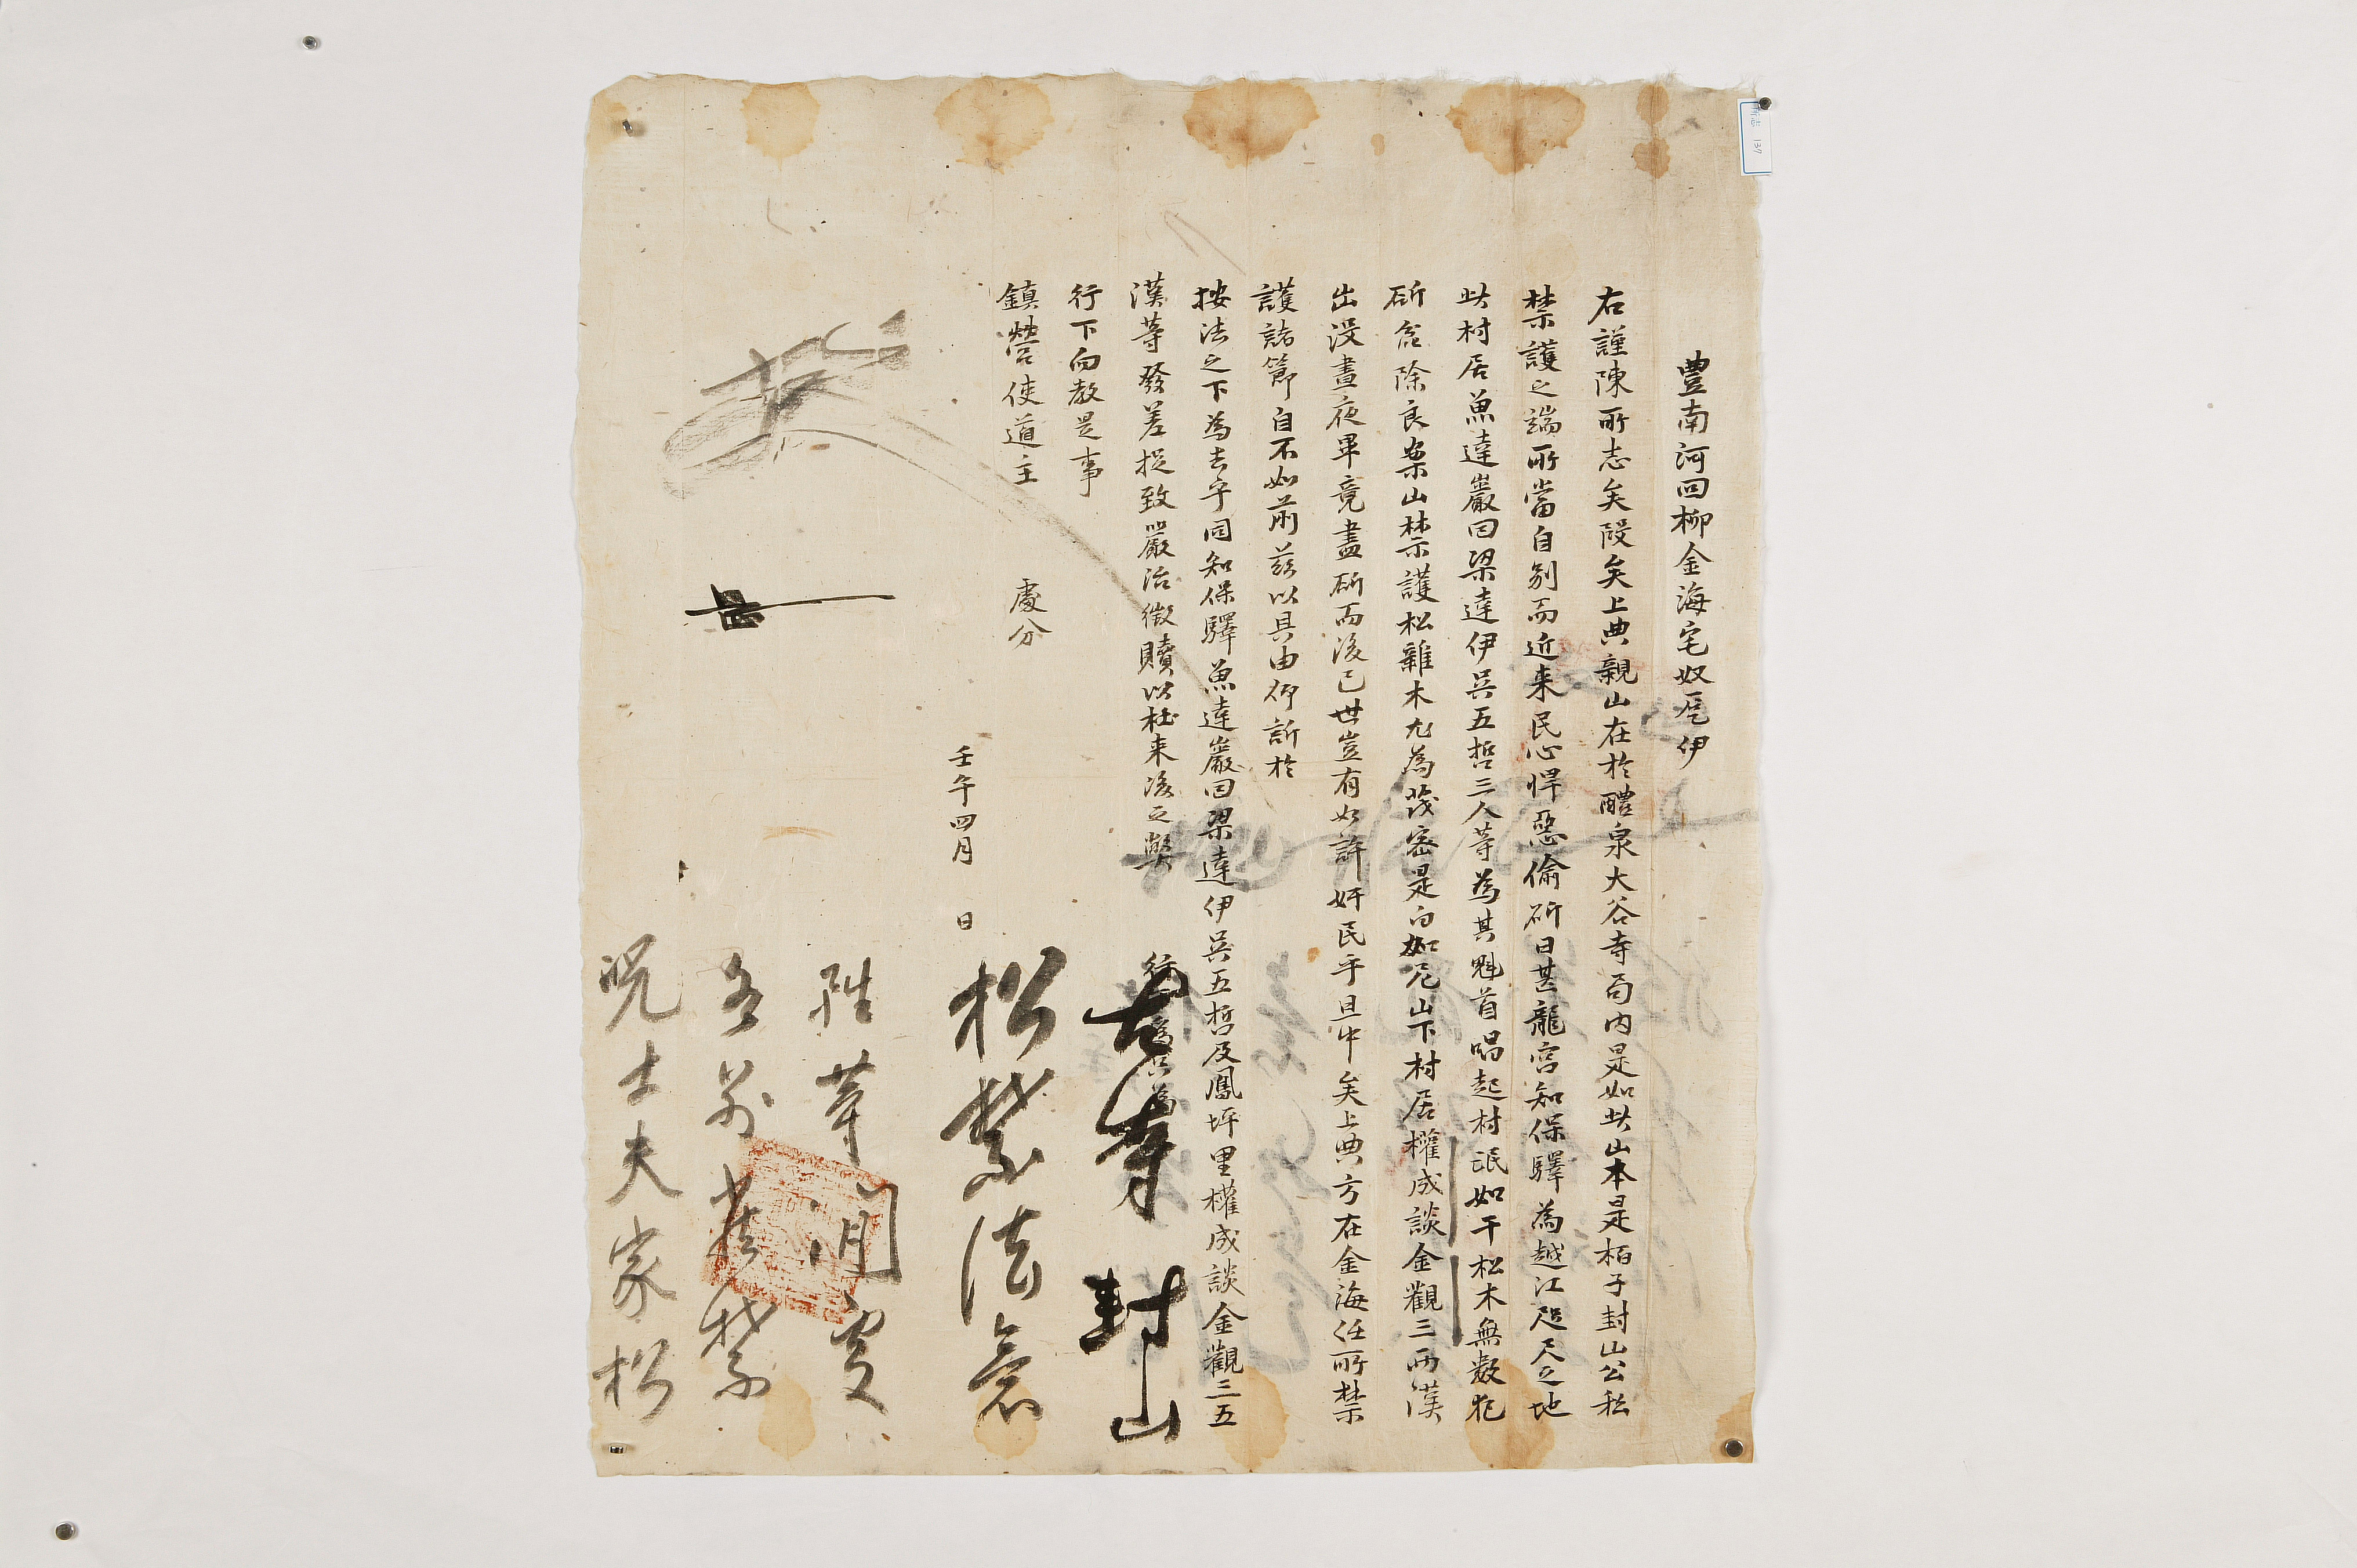 豊南河回柳金海宅奴巵伊
右謹陳所志矣段矣上典親山在於醴泉大谷寺局內是如此山本是栢子封山公私
禁護之端所當自別而近来民心悍惡偷斫日甚龍宮知保驛為越江咫尺之地
此村居魚達巖回梁達伊吳五哲三人等為其魁首唱起村氓如干松木無數犯
斫岔除良柴山禁護松雜木尤為茂密是白如尼山下村居權成談金觀三兩漢
出沒晝夜畢竟盡斫而後已世豈有如許奸民乎且中矣上典方在金海任所禁
護諸節自不如前玆以具由仰訴於
按法之下為去乎同知保驛魚達巖回梁達伊吳五哲及鳳坪里權成談金觀三五
漢等發差捉致嚴治徵贖以杜来後之弊
行下向教是事
鎮營使道主
處分
壬午四月 日
古寺封山
松禁法意
陞等閒處
各別禁
况士夫家松